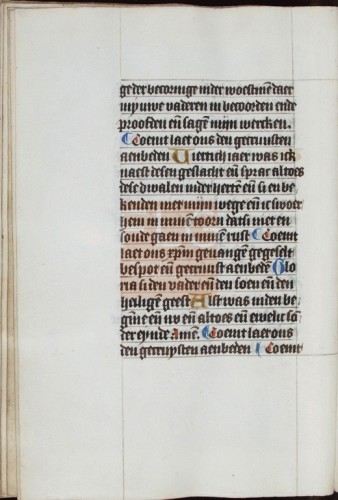 ge der becoringe inder woestinē daer
mij uwe vaderen in becoorden ende
proefden eñ sagē mijn wercken.
Coemt laet ons den gecruusten
aenbeden Viertich iaer was ick
naest desen geslacht eñ sprac altoes
dese dwalen inder hertē eñ si en be
kenden niet mijn wege eñ ic swoer
hem in minē toorn dat si niet en
soude gaen in minē rust Coemt
laet ons xpm geuangen gegeselt
bespot eñ gecruust aenbedē Glo
ria si den vader eñ den soen eñ den
heiligen geest Alst was inden be
ginē eñ nv eñ altoes eñ ewelic son
der eynde Amē. Coemt laet ons
den gecruysten aenbeden Coemt